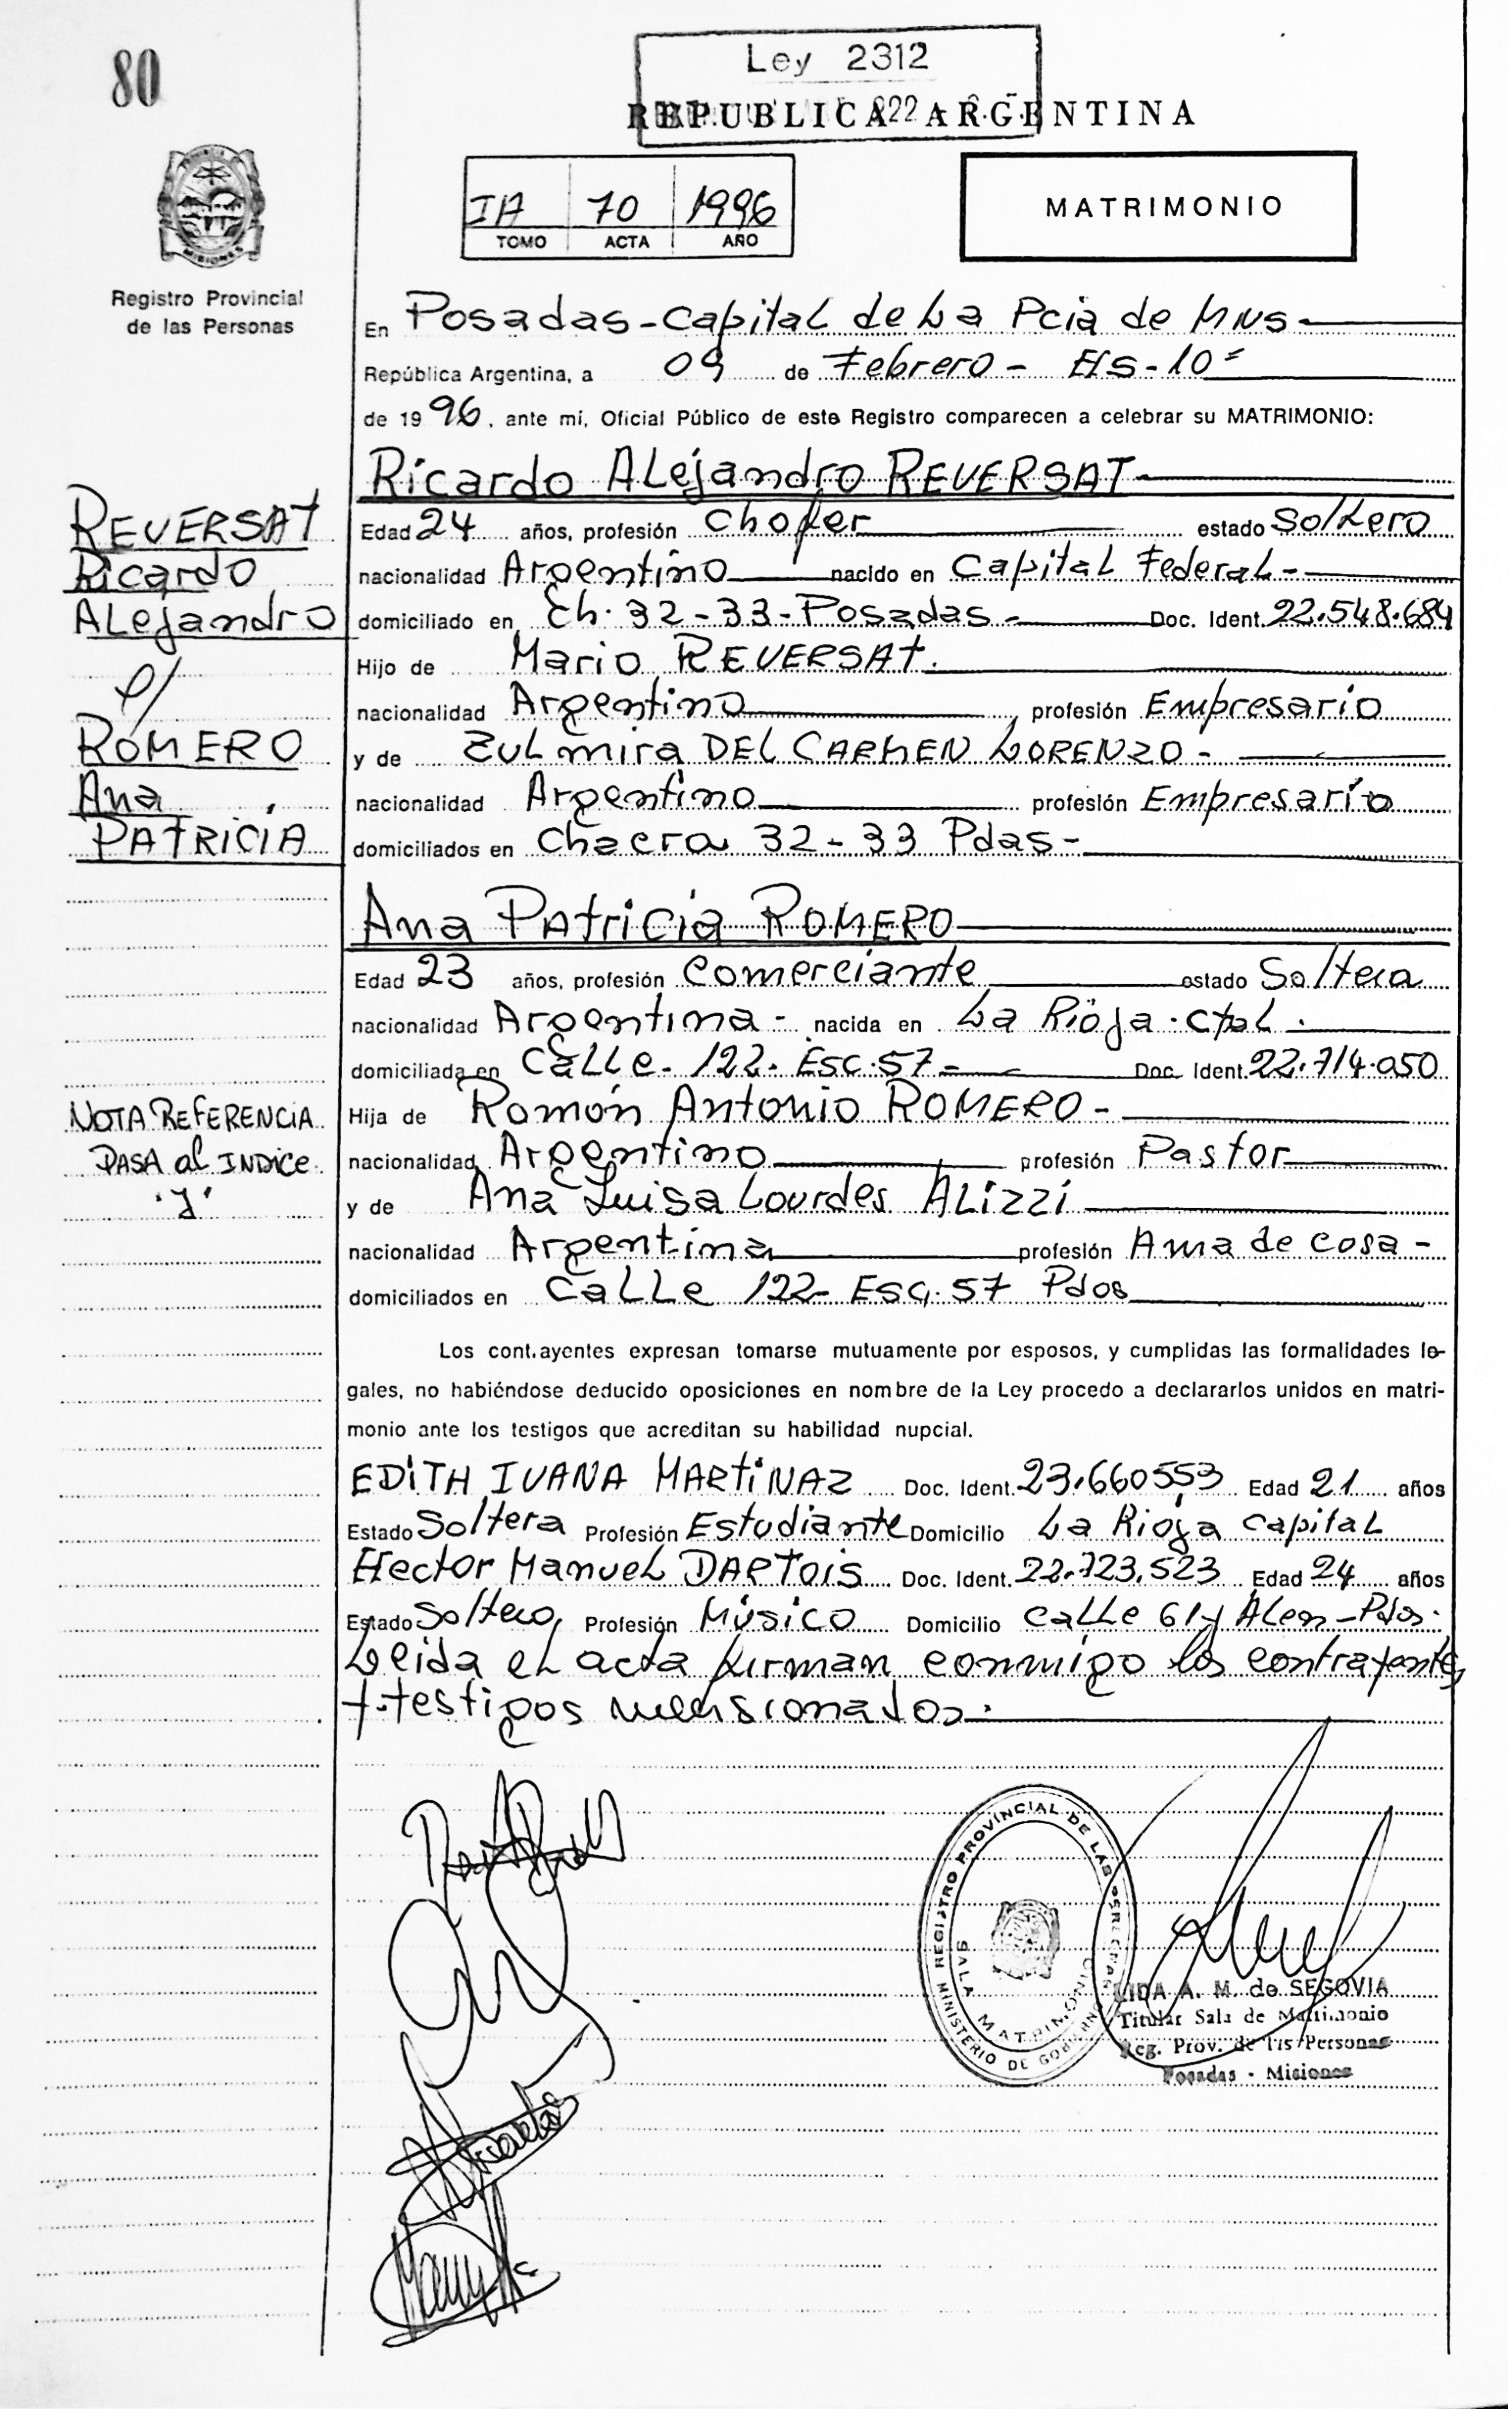 80
Ley 2312
REPUBLICA ARGENTINA
IA 70 1996
TOMO ACTA AÑO
MATRIMONIO
Registro Provincial
de las Personas
En Posadas - Capital de La Pcia de MNS -
República Argentina, a 09 de Febrero - HS - 10=
de 1996, ante mí, Oficial Público de este Registro comparecen a celebrar su MATRIMONIO:
Ricardo ALejandro REVERSAT -
Edad 24 años, profesión Chofer estado Soltero
nacionalidad Argentino nacido en Capital Federal -
domiciliado en Ch. 32-33 - Posadas - Doc. Ident. 22.548.684
Hijo de Mario REVERSAT.
nacionalidad Argentino, profesión Empresario
y de ZULmira DEL CARMEN LORENZO -
nacionalidad Argentino profesión Empresario
domiciliados en Chacra 32-33 Pdas -
REVERSAT
Ricardo
ALejandro
c/
ROMERO
Ana
PATRICIA
Ana Patricia ROMERO
Edad 23 años, profesión Comerciante estado Soltera
nacionalidad Argentina - nacida en La Rioja - Ctal.
domiciliada en CaLLe - 122 - Esc. 57 - Doc. Ident. 22.714.050
Hija de Ramón Antonio ROMERO -
nacionalidad Argentino profesión Pastor
y de Ana Luisa Lourdes ALizzi
nacionalidad Argentina profesión Ama de casa -
domiciliados en CaLLe 122 - Esq. 57 Pdas
NOTA REFERENCiA
PASA al INDice
"J"
Los cont.ayentes expresan tomarse mutuamente por esposos, y cumplidas las formalidades le-
gales, no habiéndose deducido oposiciones en nombre de la Ley procedo a declararlos unidos en matri-
monio ante los testigos que acreditan su habilidad nupcial.
EDiTH IVANA MARTiNAZ Doc. Ident. 23.660553 Edad 21 años
Estado Soltera Profesión Estudiante Domicilio La Rioja Capital
Hector Manuel DARTOIS Doc. Ident. 22.723.523 Edad 24 años
Estado Soltero, Profesión Músico Domicilio CaLLe 61 y ALem - Pdas.
Leida el acta firman conmigo los contrayentes
y testigos mensionados.
REGISTRO PROVINCIAL DE LAS PERSONAS
MINISTERIO DE GOBIERNO
SALA MATRIMONIO
LIDA A. M. de SEGOVIA
Titular Sala de Matrimonio
Reg. Prov. de las Personas
Posadas - Misiones